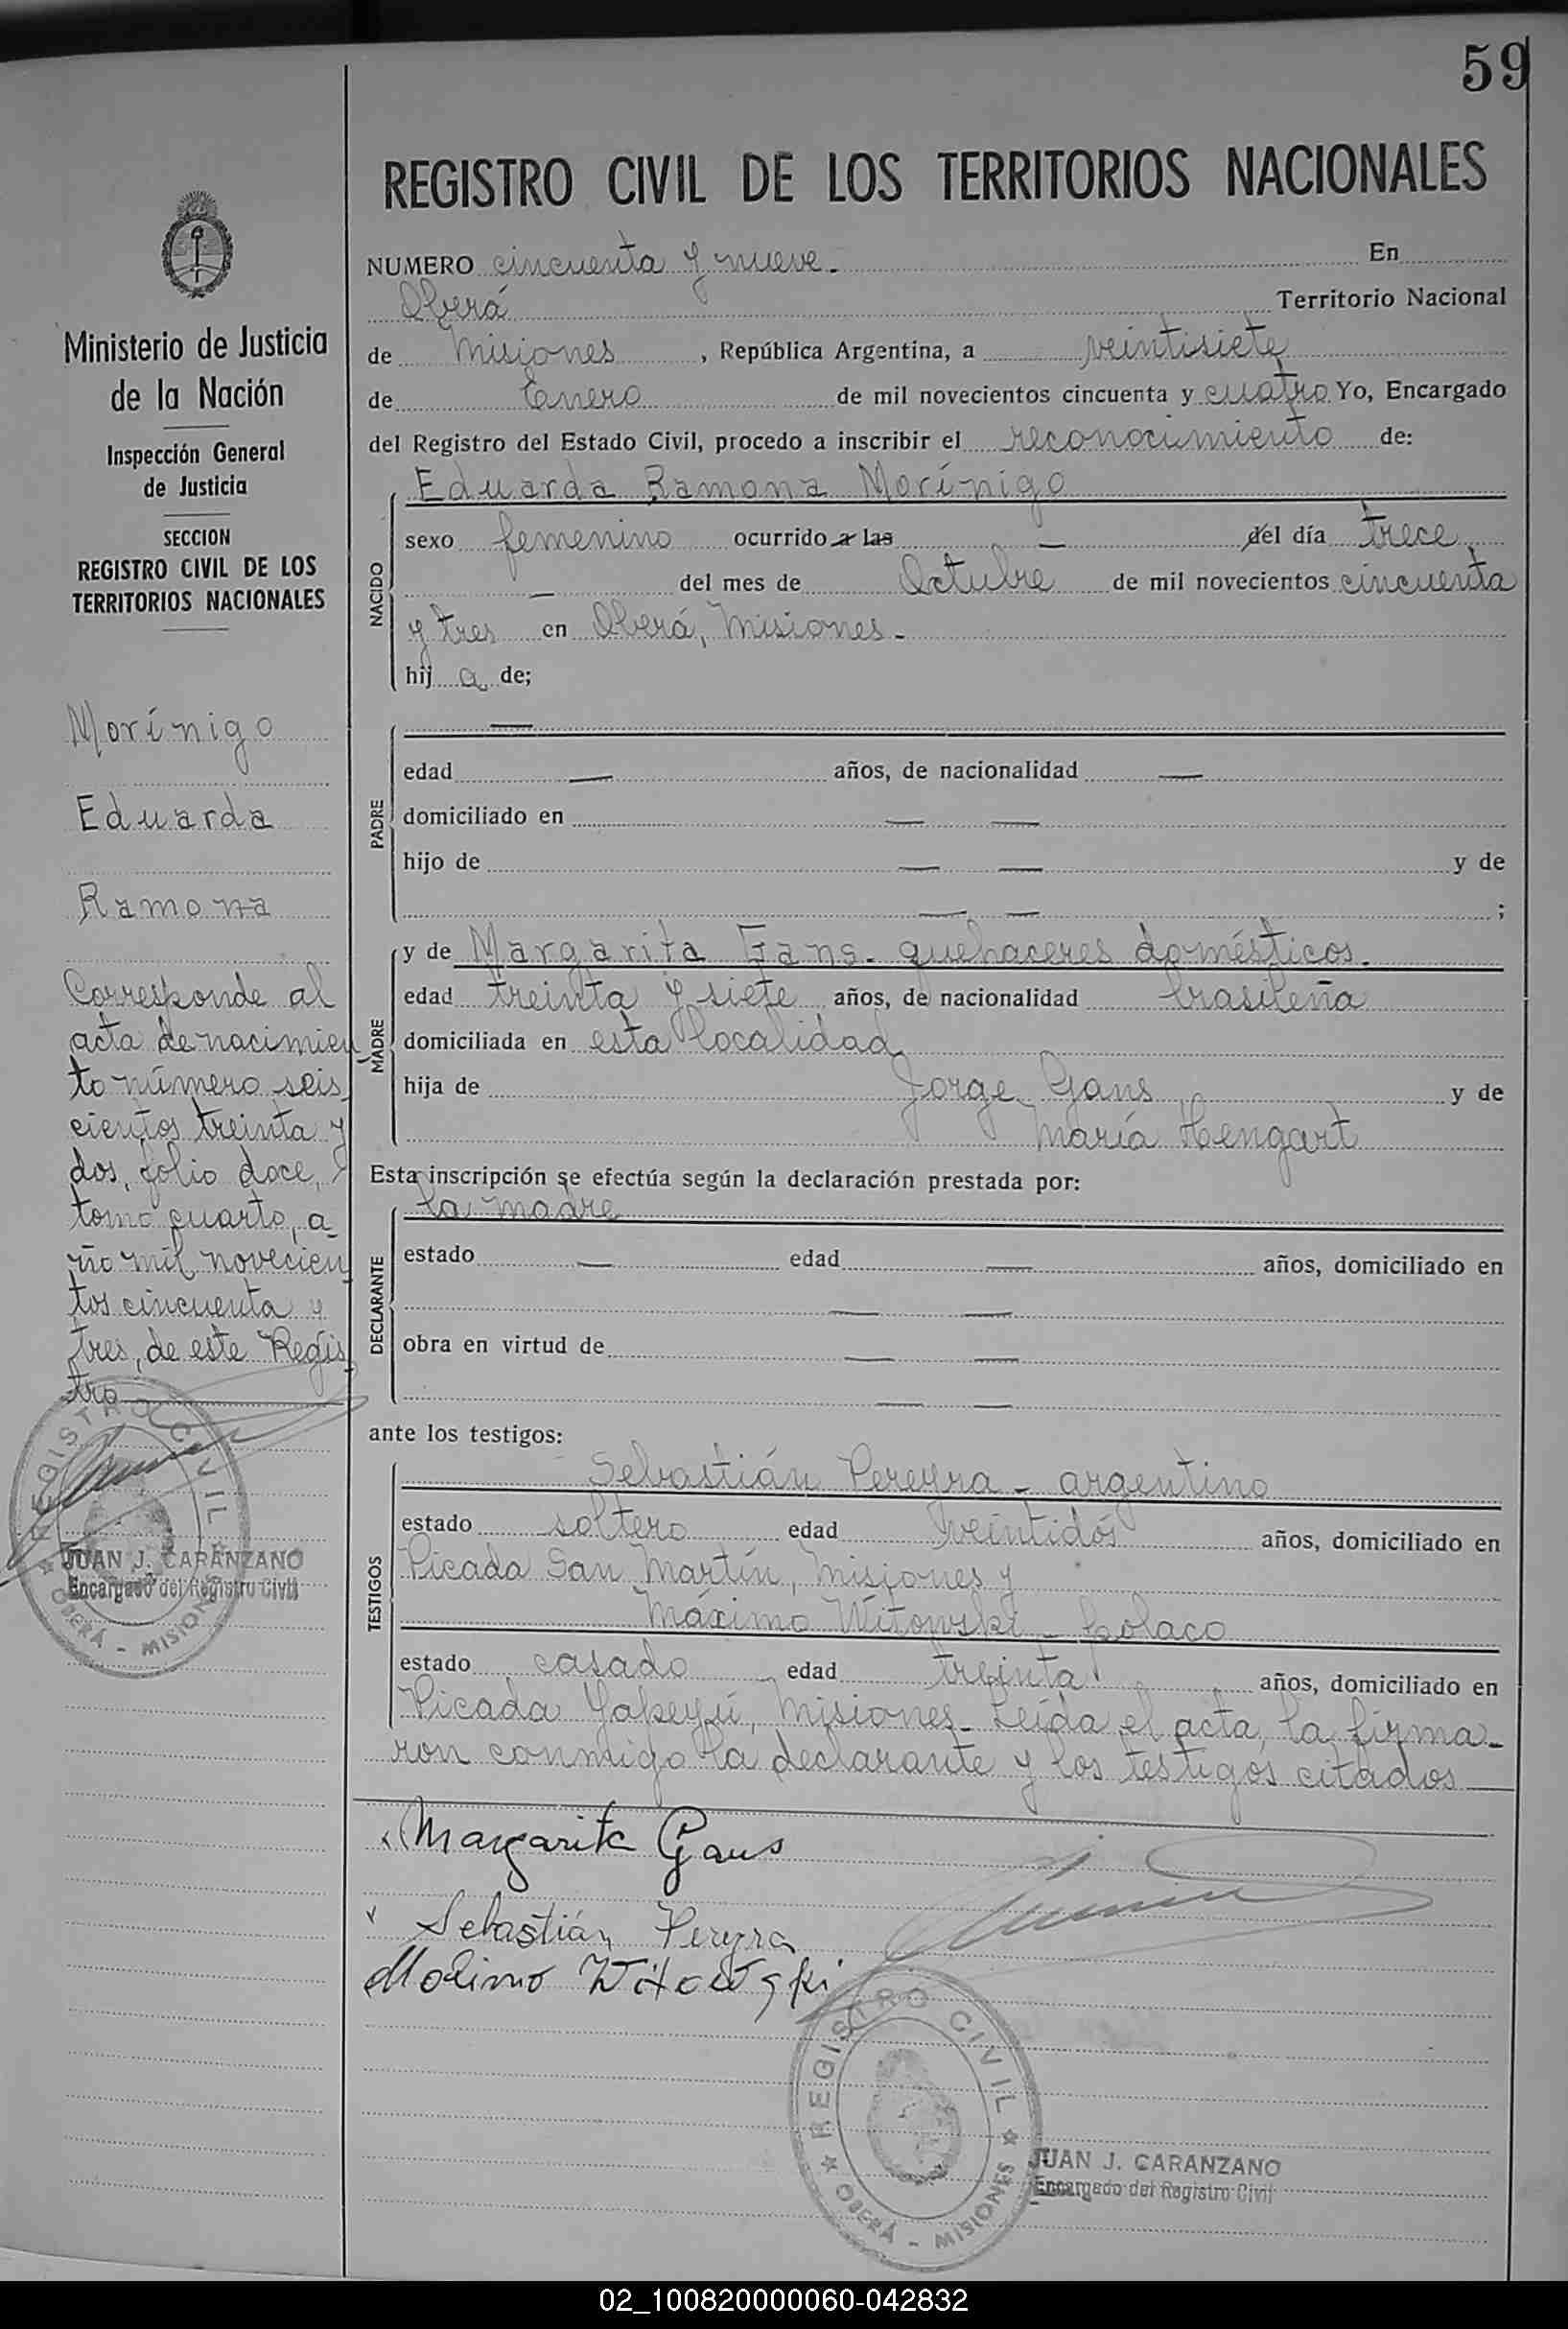 59
REGISTRO CIVIL DE LOS TERRITORIOS NACIONALES
Ministerio de Justicia
de la Nación
Inspección General
de Justicia
SECCION
REGISTRO CIVIL DE LOS
TERRITORIOS NACIONALES
Morínigo
Eduarda
Ramona
Corresponde al
acta de nacimien
to número seis
cientos treinta y
dos, folio doce,
tomo cuarto, a-
ño mil novecien
tos cincuenta y
tres, de este Regis
tro
REGISTRO CIVIL
JUAN J. CARANZANO
Encargado del Registro Civil
OBERÁ - MISIONES
NUMERO cincuenta y nueve. En
Oberá Territorio Nacional
de Misiones, República Argentina, a veintisiete
de Enero de mil novecientos cincuenta y cuatro Yo, Encargado
del Registro del Estado Civil, procedo a inscribir el reconocimiento de:
NACIDO
Eduarda Ramona Morínigo
sexo femenino ocurrido a las — del día trece
— del mes de Octubre de mil novecientos cincuenta
y tres en Oberá, Misiones.
hij a de;
PADRE
—
edad — años, de nacionalidad —
domiciliado en — —
hijo de — — y de
— — ;
MADRE
y de Margarita Gans. quehaceres domésticos.
edad treinta y siete años, de nacionalidad brasileña
domiciliada en esta localidad
hija de Jorge Gans y de
María Hengart
Esta inscripción se efectúa según la declaración prestada por:
DECLARANTE
la madre
estado — edad — años, domiciliado en
— —
obra en virtud de — —
— —
ante los testigos:
TESTIGOS
Sebastián Pereyra - argentino
estado soltero edad veintidós años, domiciliado en
Picada San Martín, Misiones y
Máximo Witowski - polaco
estado casado edad treinta años, domiciliado en
Picada Yapeyú, Misiones. Leída el acta, la firma-
ron conmigo la declarante y los testigos citados
Margarita Gans
Sebastián Pereyra
Maximo Witowski
REGISTRO CIVIL
OBERÁ - MISIONES
JUAN J. CARANZANO
Encargado del Registro Civil
02_100820000060-042832